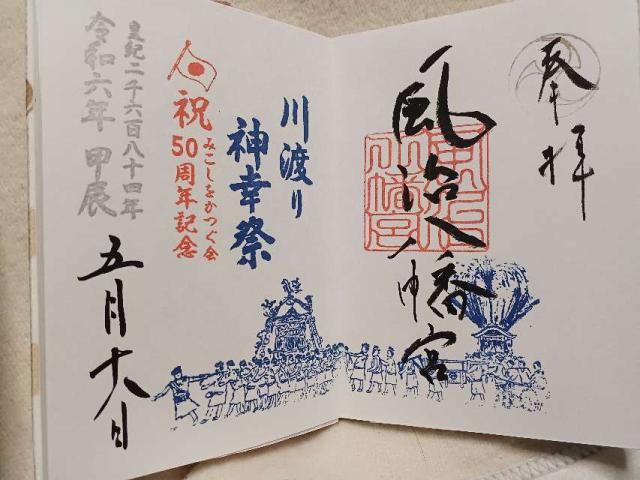 奉拝
風治八幡宮
川渡り
神幸祭
祝
みこしをかつぐ会
50周年記念
皇紀二千六百八十四年
令和六年 甲辰
五月十八日